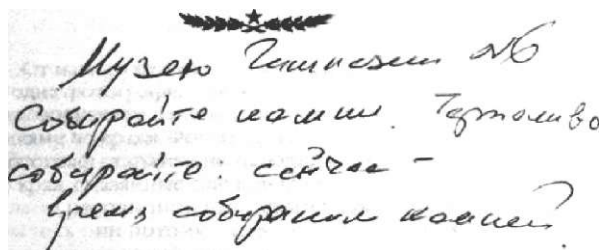 Музею Гимназии №6
Собирайте камни. Терпеливо
собирайте. сейчас –
время собирания камней